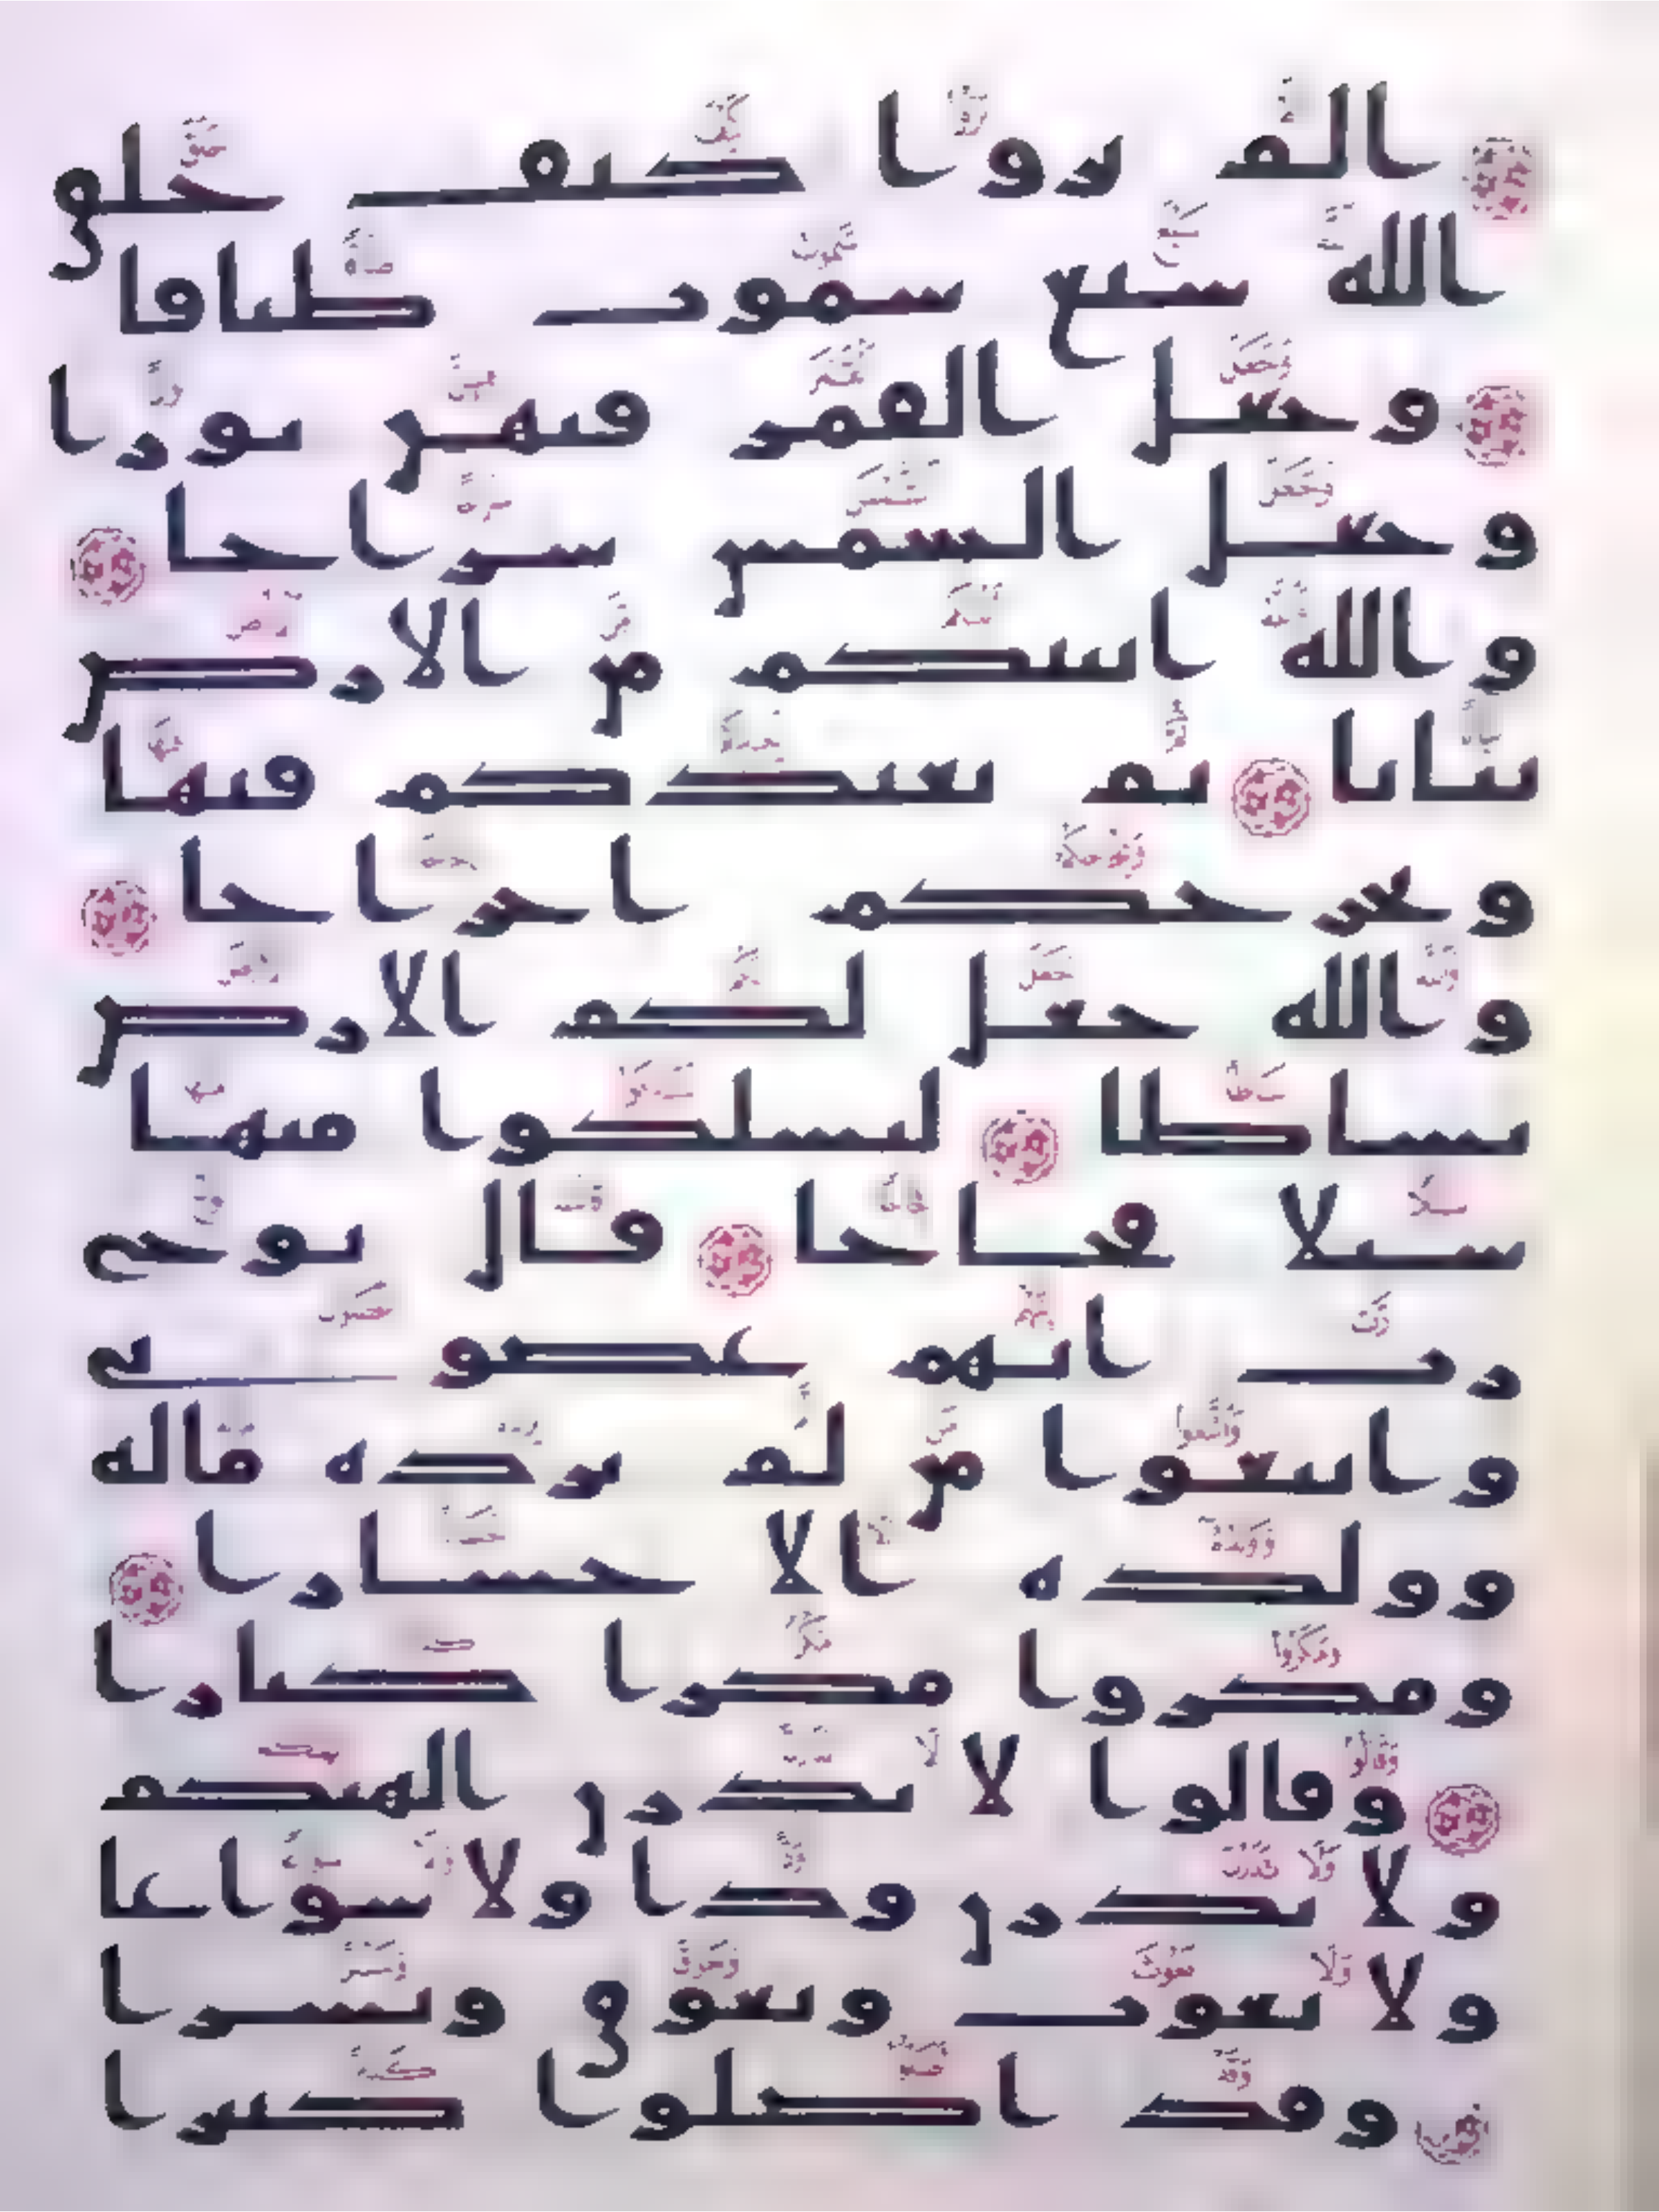 الم تروا كيف خلق
الله سبع سموت طباقا
وجعل القمر فيهن نورا
وجعل الشمس سراجا
والله انبتكم من الارض
نباتا ثم يعيدكم فيها
ويخرجكم اخراجا
والله جعل لكم الارض
بساطا لتسلكوا منها
سبلا فجاجا قال نوح
رب انهم عصوني
واتبعوا من لم يزده ماله
وولده الا خسارا
ومكروا مكرا كبارا
وقالوا لا تذرن الهتكم
ولا تذرن ودا ولا سواعا
ولا يغوث ويعوق ونسرا
وقد اضلوا كثيرا